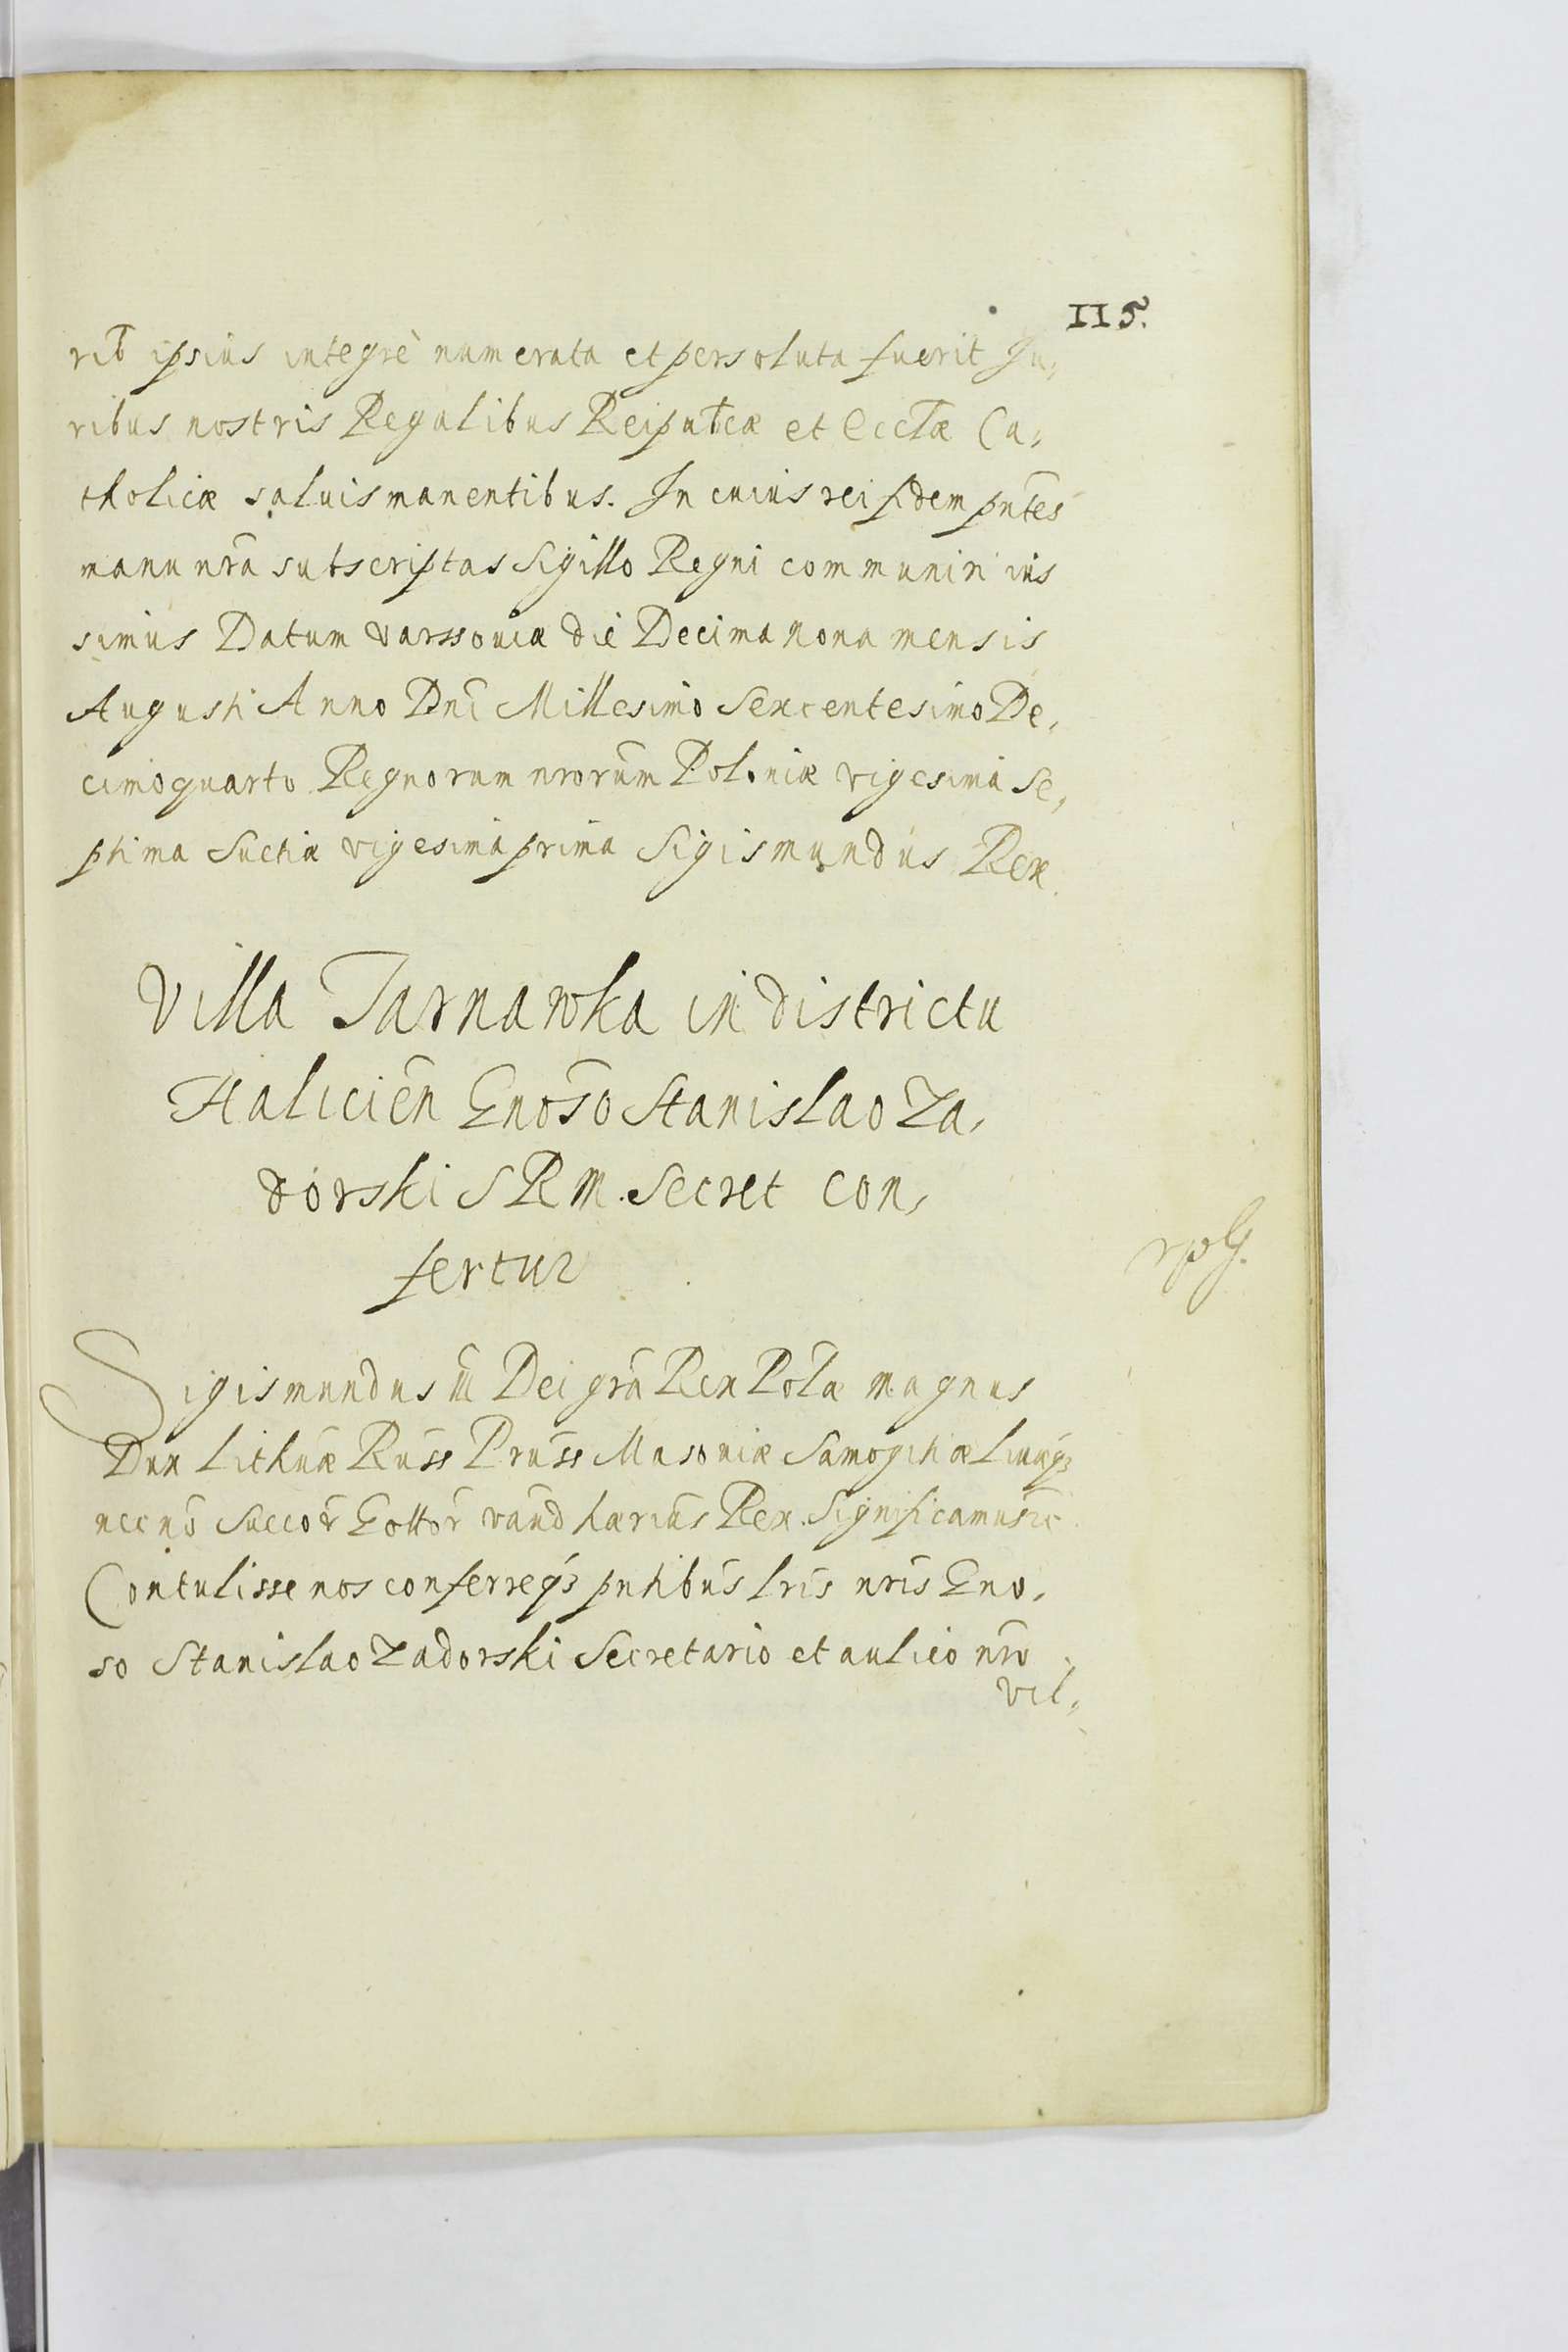 115.
rib ipsius integrè numerata et persoluta fuerit Ju,
ribus nostris Regalibus Reipubcæ et Ecctæ Ca,
tholicæ saluis manentibus. In cuius rei fidem pñtes
manu nrã subscriptas Sigillo Regni communiri ius
simus Datum varssouiæ die Decima nona mensis
Augusti Anno Dnĩ Millesimo Sexcentesimo De,
cimoquarto Regnorum nrorũm Poloniæ vigesima Se,
ptima Suetiæ vigesima prima Sigismundus Rex
Villa Tarnawka in districtu
Haliciẽn Gnõso Stanislao Za,
dorski S R M. Secret con,
fertur
Sigismundus III Dei grã Rex Polæ magnus
Dux Lithuæ Russ Pruss Masouiæ Samogitiæ Liuæq3
necnõ Suecor Gottor vand hærius Rex. Significamus
Contulisse nos conferreq3 pntibus lris nris Gno,
so Stanislao Zadorski Secretario et aulico nrõ
vil,